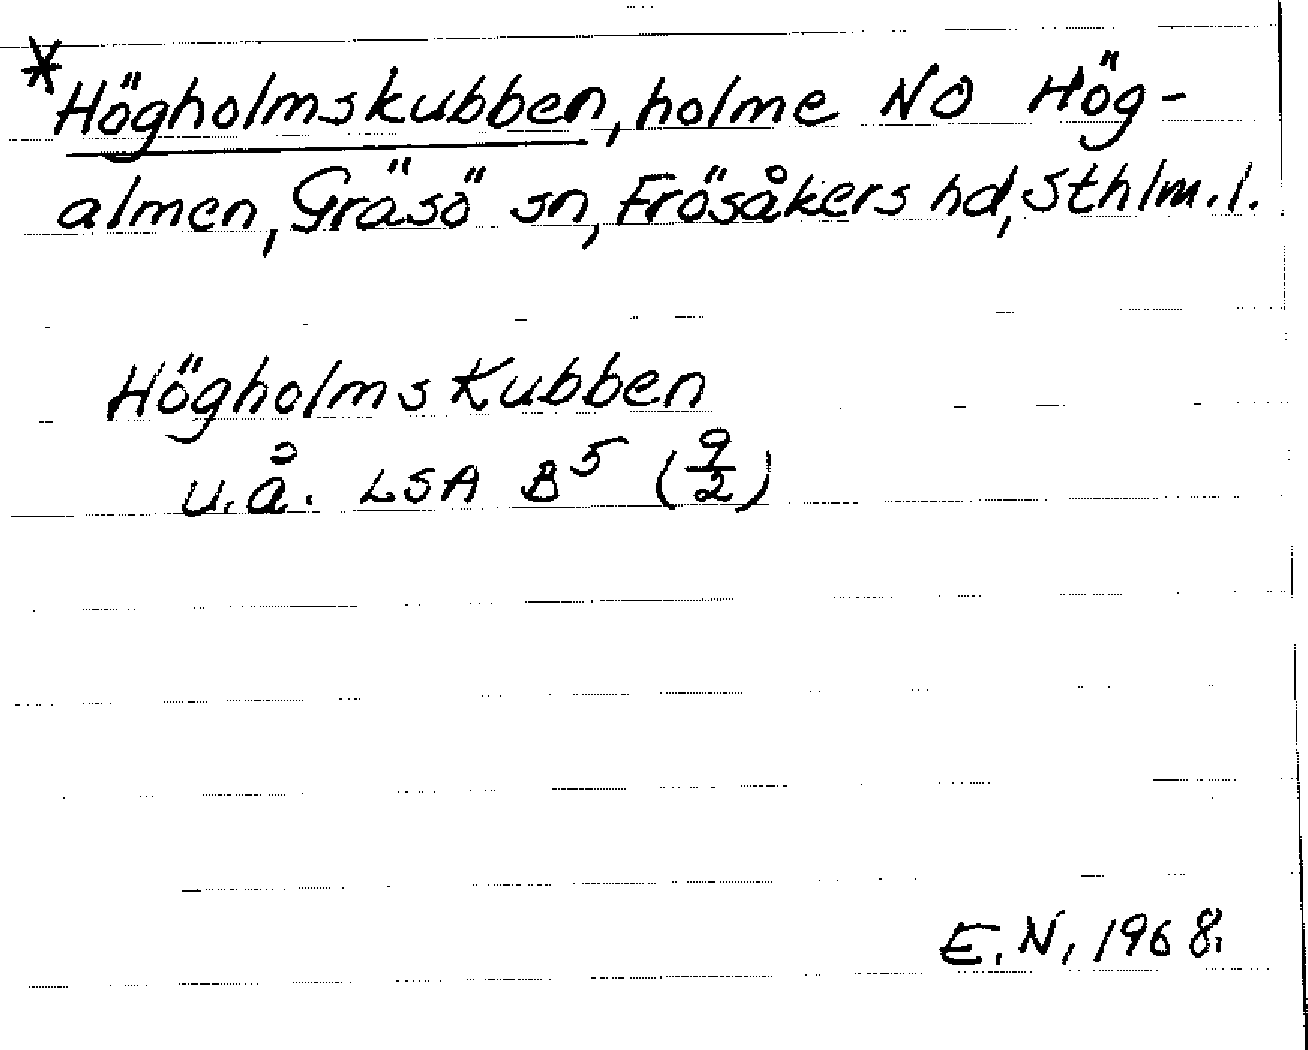 *Högholmskubben, holme NO Hög-
almen, Gräsö sn, Frösåkers hd, Sthlm.l.
Högholms Kubben
u.å. LSA B⁵ (9/2)
E.N. 1968.